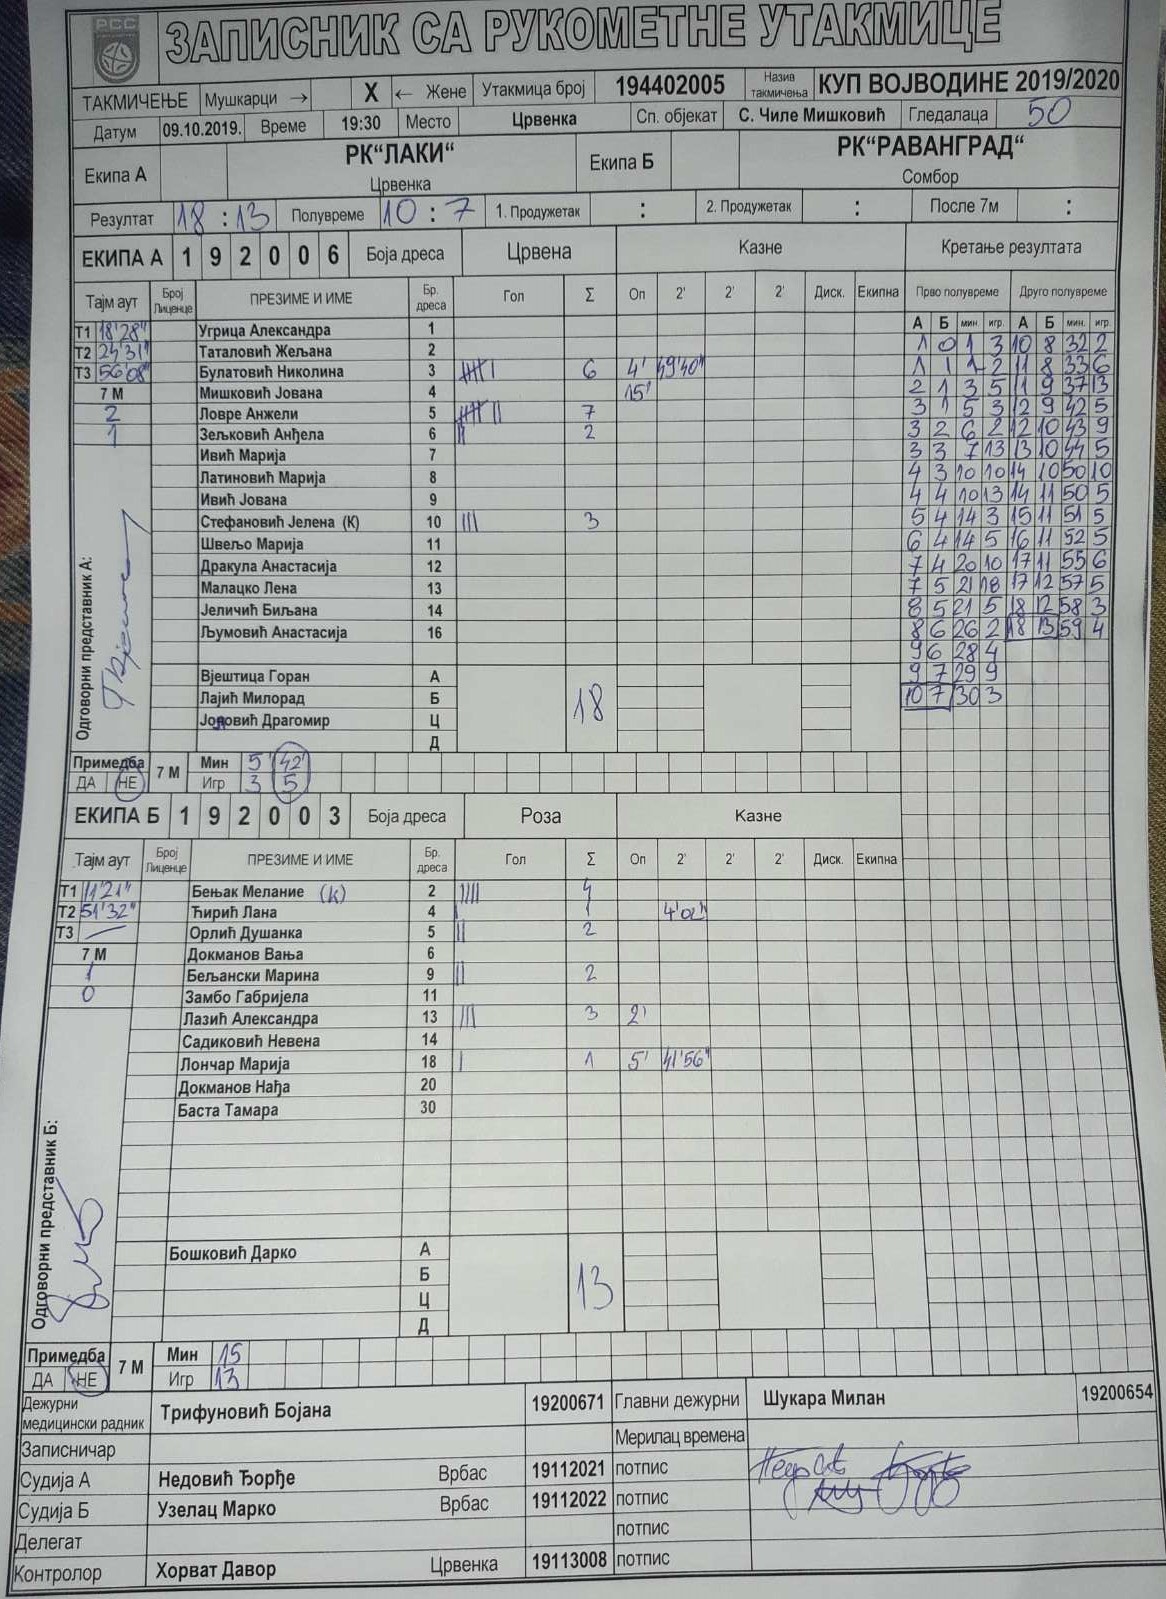 РСС
ЗАПИСНИК СА РУКОМЕТНЕ УТАКМИЦЕ
ТАКМИЧЕЊЕ Мушкарци → X ← Жене Утакмица број 194402005 Назив такмичења КУП ВОЈВОДИНЕ 2019/2020
Датум 09.10.2019. Време 19:30 Место Црвенка Сп. објекат С. Чиле Мишковић Гледалаца 50
Екипа А РК“ЛАКИ“ Црвенка Екипа Б РК“РАВАНГРАД“ Сомбор
Резултат 18 : 13 Полувреме 10 : 7 1. Продужетак : 2. Продужетак : После 7м :
ЕКИПА А 1 9 2 0 0 6 Боја дреса Црвена Казне Кретање резултата
Тајм аут Број Лиценце ПРЕЗИМЕ И ИМЕ Бр. дреса Гол Σ Оп 2' 2' 2' Диск. Екипна Прво полувреме Друго полувреме
А Б мин. игр. А Б мин. игр.
Т1 18'28" Угрица Александра 1 1 0 1 3 10 8 32 2
Т2 24'31" Таталовић Жељана 2 1 1 2 2 11 8 33 6
Т3 56'08" Булатовић Николина 3 |||| | 6 4' 49'40" 2 1 3 5 11 9 37 13
7 М Мишковић Јована 4 15' 3 1 5 3 12 9 42 5
2 Ловре Анжели 5 |||| || 7 3 2 6 2 12 10 43 9
1 Зељковић Анђела 6 || 2 3 3 7 13 13 10 44 5
Ивић Марија 7 4 3 10 10 14 10 50 10
Латиновић Марија 8 4 4 10 13 14 11 50 5
Ивић Јована 9 5 4 14 3 15 11 51 5
Стефановић Јелена (К) 10 ||| 3 6 4 14 5 16 11 52 5
Швељо Марија 11 7 4 20 10 17 11 55 6
Дракула Анастасија 12 7 5 21 18 17 12 57 5
Малацко Лена 13 8 5 21 5 18 12 58 3
Јеличић Биљана 14 8 6 26 2 18 13 59 4
Љумовић Анастасија 16 9 6 28 4
9 7 29 9
10 7 30 3
Одговорни представник А:
Вјештица Горан А
Лајић Милорад Б 18
Драгомир Ц
Д
Примедба ДА НЕ 7 М Мин 5' 42'
Игр 3 5
ЕКИПА Б 1 9 2 0 0 3 Боја дреса Роза Казне
Тајм аут Број Лиценце ПРЕЗИМЕ И ИМЕ Бр. дреса Гол Σ Оп 2' 2' 2' Диск. Екипна
Т1 11'21" Бењак Мелание (К) 2 |||| 4
Т2 51'32" Ћирић Лана 4 | 1 4'02"
Т3 — Орлић Душанка 5 || 2
7 М Докманов Вања 6
1 Бељански Марина 9 || 2
0 Замбо Габријела 11
Лазић Александра 13 ||| 3 2'
Садиковић Невена 14
Лончар Марија 18 | 1 5' 41'56"
Докманов Нађа 20
Баста Тамара 30
Одговорни представник Б:
Бошковић Дарко А
Б
Ц 13
Д
Примедба ДА НЕ 7 М Мин 15
Игр 13
Дежурни медицински радник Трифуновић Бојана 19200671 Главни дежурни Шукара Милан 19200654
Записничар Мерилац времена
Судија А Недовић Ђорђе Врбас 19112021 потпис
Судија Б Узелац Марко Врбас 19112022 потпис
Делегат потпис
Контролор Хорват Давор Црвенка 19113008 потпис